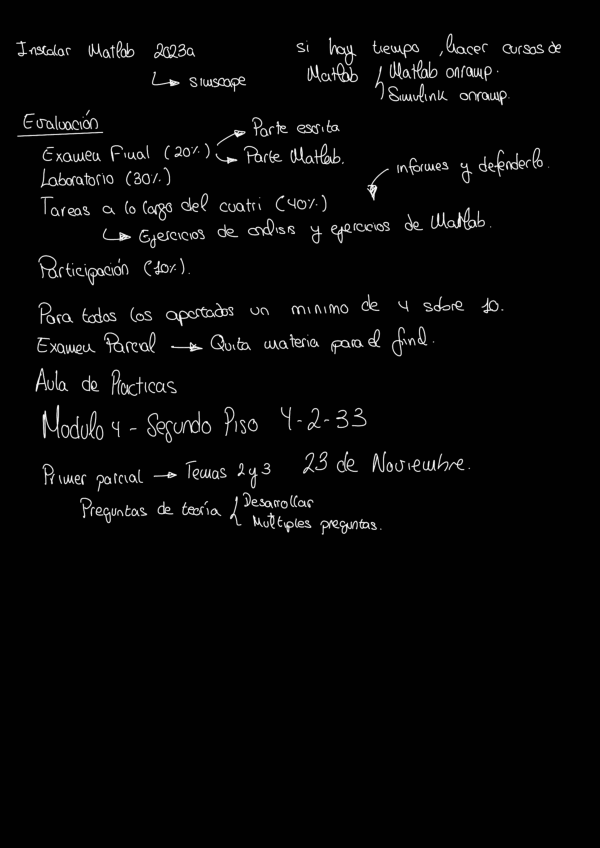 Instalar Matlab 2023a
↳ simscape
si hay tiempo, hacer cursos de
Matlab { Matlab onramp.
Simulink onramp.
Evaluación
Examen Final (20%) → Parte escrita
→ Parte Matlab.
Laboratorio (30%)
informes y defenderlo.
Tareas a lo largo del cuatri (40%)
↳ Ejercicios de analisis y ejercicios de Matlab.
Participación (10%).
Para todos los apartados un minimo de 4 sobre 10.
Examen Parcial → Quita materia para el final.
Aula de Practicas
Modulo 4 - Segundo Piso 4-2-33
Primer parcial → Temas 2 y 3 23 de Noviembre.
Preguntas de teoría { Desarrollar
Multiples preguntas.